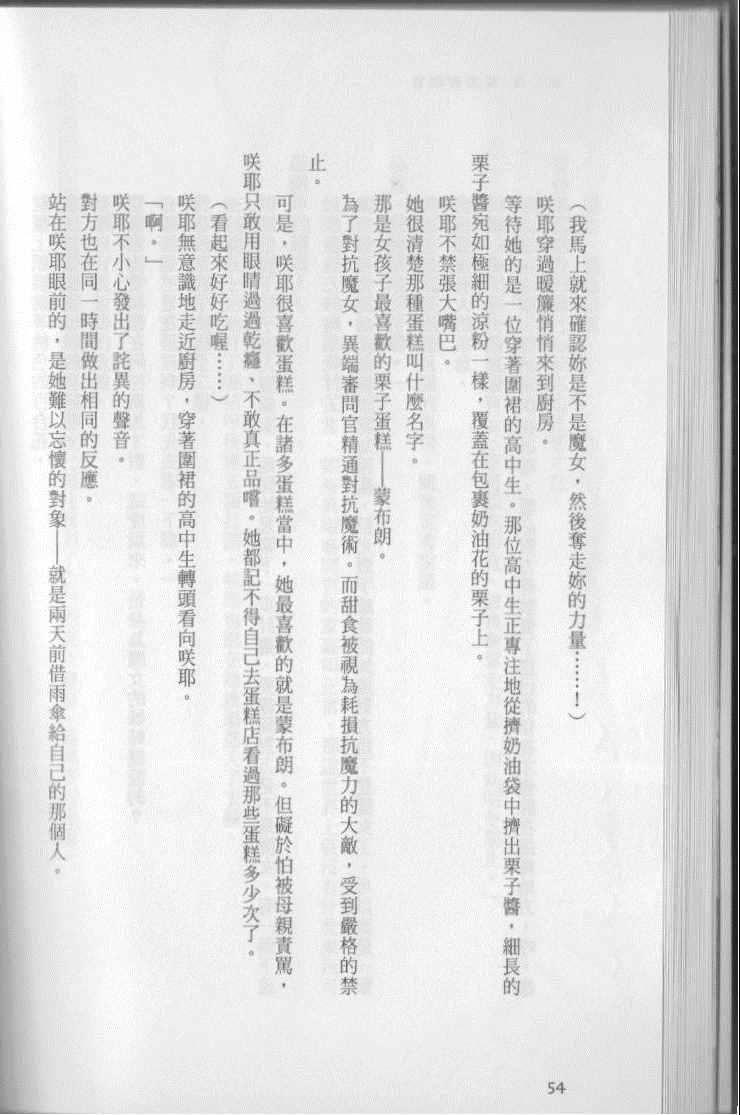 （我馬上就來確認妳是不是魔女，然後奪走妳的力量……！）
咲耶穿過暖簾悄悄來到廚房。
等待她的是一位穿著圍裙的高中生。那位高中生正專注地從擠奶油袋中擠出栗子醬，細長的
栗子醬宛如極細的涼粉一樣，覆蓋在包裹奶油花的栗子上。
咲耶不禁張大嘴巴。
她很清楚那種蛋糕叫什麼名字。
那是女孩子最喜歡的栗子蛋糕——蒙布朗。
為了對抗魔女，異端審問官精通對抗魔術。而甜食被視為耗損抗魔力的大敵，受到嚴格的禁
止。
可是，咲耶很喜歡蛋糕。在諸多蛋糕當中，她最喜歡的就是蒙布朗。但礙於怕被母親責罵，
咲耶只敢用眼睛過過乾癮、不敢真正品嚐。她都記不得自己去蛋糕店看過那些蛋糕多少次了。
（看起來好好吃喔……）
咲耶無意識地走近廚房，穿著圍裙的高中生轉頭看向咲耶。
「啊。」
咲耶不小心發出了詫異的聲音。
對方也在同一時間做出相同的反應。
站在咲耶眼前的，是她難以忘懷的對象——就是兩天前借雨傘給自己的那個人。
54